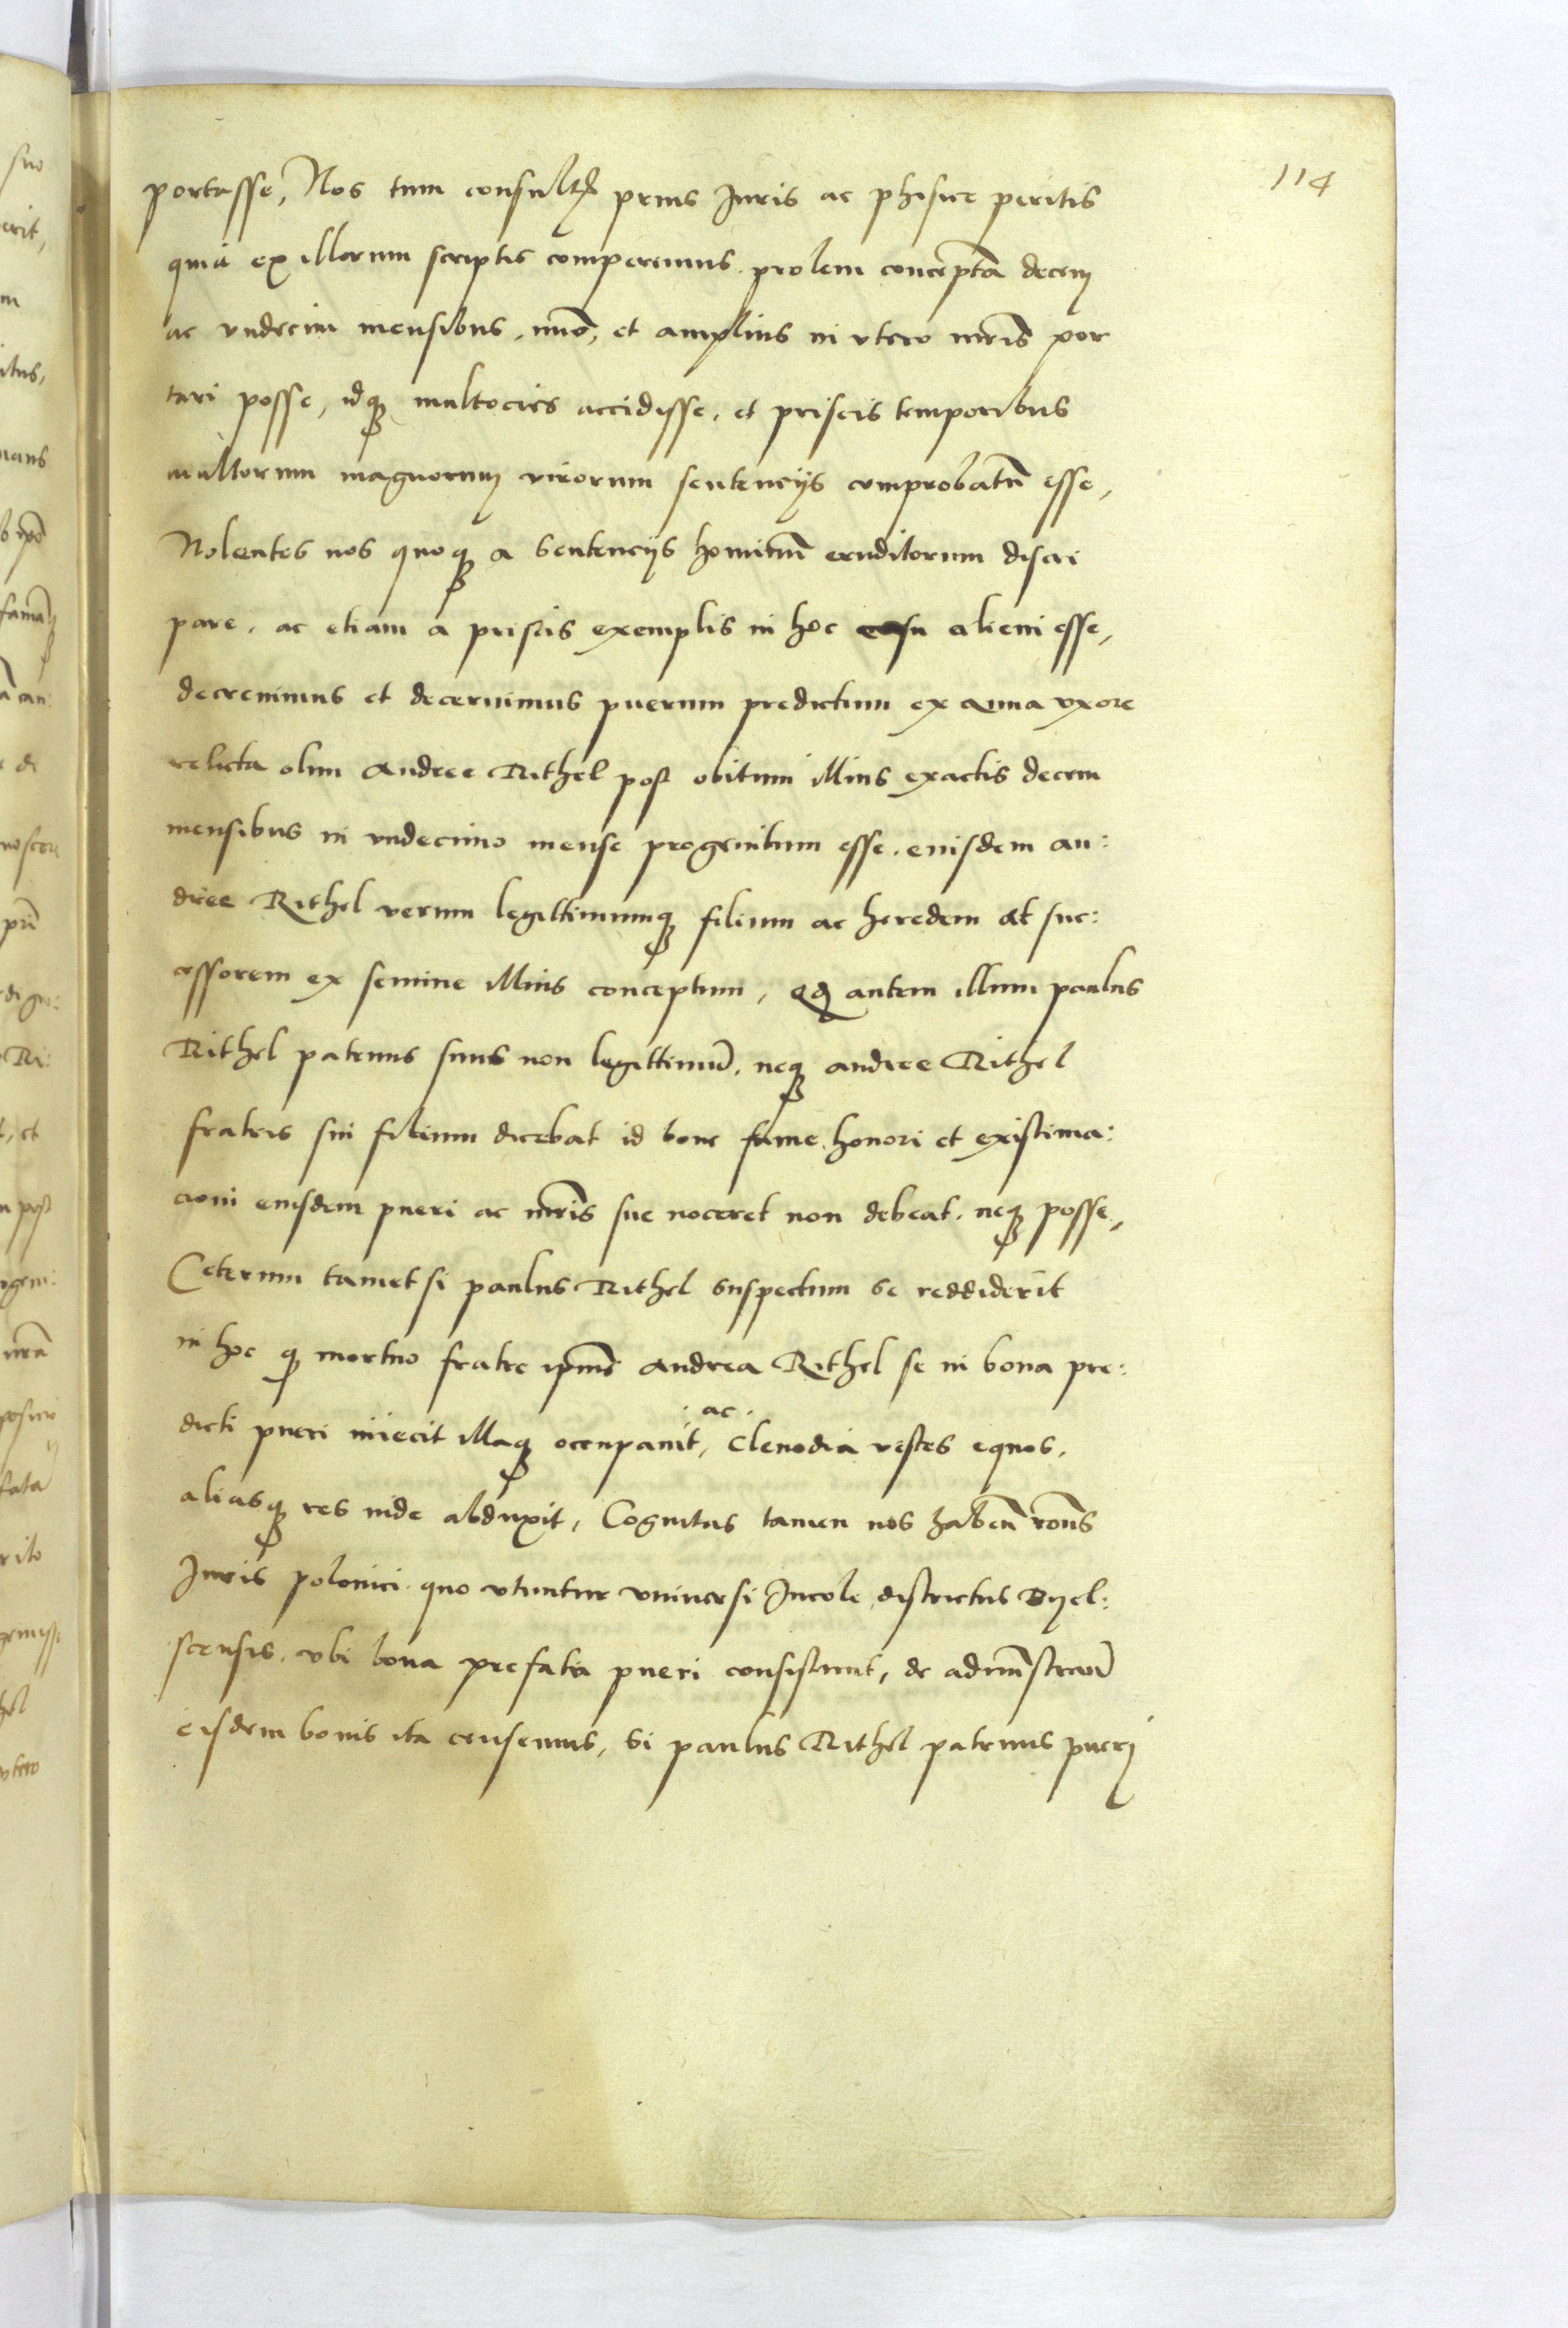 114
portasse, Nos tum consultis prius Juris ac phisice peritis
quia ex illorum scriptis comperimus prolem conceptā decem
ac vndecim mensibus, imō, et amplius in vtero mrīs por
tari posse, idq3 multocies accidisse, et priscis temporibus
multorum magnorum virorum sentencijs comprobatū esse,
Nolentes nos quoq3 a sentencijs hominū eruditorum discri
pare, ac etiam a priscis exemplis in hoc casu alieni esse,
decreuimus et decernimus puerum predictum ex Anna vxore
relicta olim Andree Rithel post obitum illius exactis decem
mensibus in vndecimo mense progenitum esse, eiusdem An:
dree Rithel verum legittimumq3 filium ac heredem et suc:
cessorem ex semine illius conceptum, qd autem illum paulus
Rithel patruus suus non legittimū, neq3 andree Rithel
fratris sui filium dicebat id bone fame honori et existima:
cioni eiusdem pueri ac mrīs sue noceret non debeat, neq3 posse,
Ceterum tametsi paulus Rithel suspectum se reddiderit
in hoc q mortuo fratre ipīus Andrea Rithel se in bona pre:
dicti pueri iniecit illaq3 occupauit, ac Clenodia vestes equos,
aliasq3 res inde abduxit, Cognitus tamen nos habēn rōns
Juris polonici quo vtuntur vniuersi Incole districtus Byel:
scensis, vbi bona prefata pueri consistunt, de admīstracōē
eisdem bonis ita censemus, Si paulus Rithel patruus pueri